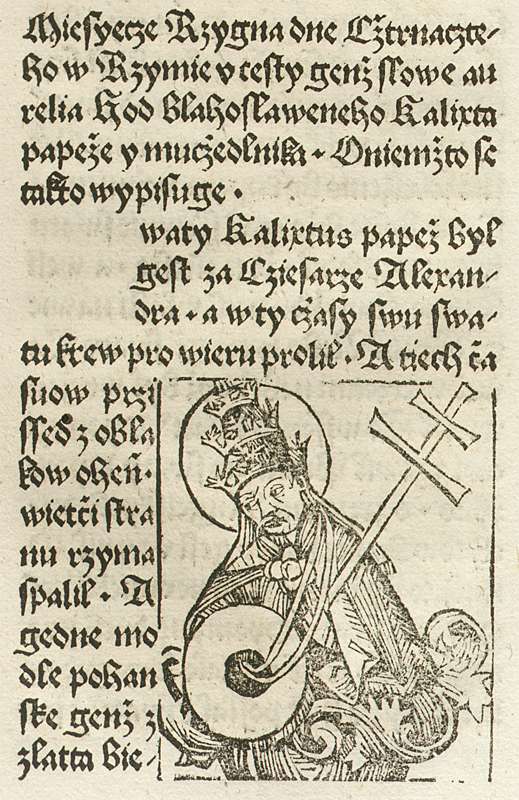 Miesyecze Rzygna dne Cžtrnaczte-
ho w Rzymie v cesty genž slowe au
relia Hod blahoslaweneho Kalixta
papeže y muczedlnika · Oniemžto se
takto wypisuge ·
waty Kalixtus papež byl
gest za Cziesarze Alexan-
dra · a w ty czasy swu swa-
tu krew pro wieru prolil · A tiech ča
suow przi
ssed z obla
kow oheň ·
wietči stra
nu rzyma
spalil · A
gedne mo
dle pohan
ske genž z
zlatta bie-